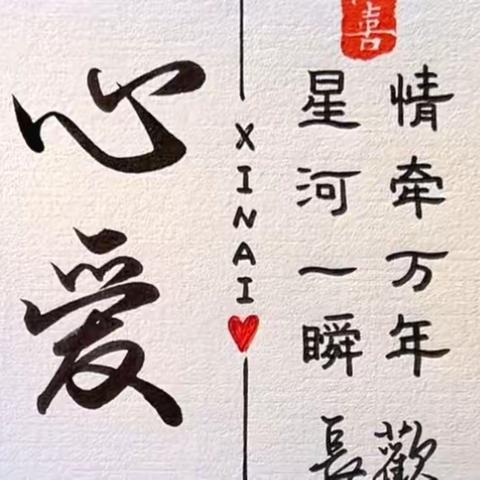 心爱
XINAI
星河一瞬
情牵万年
長歡